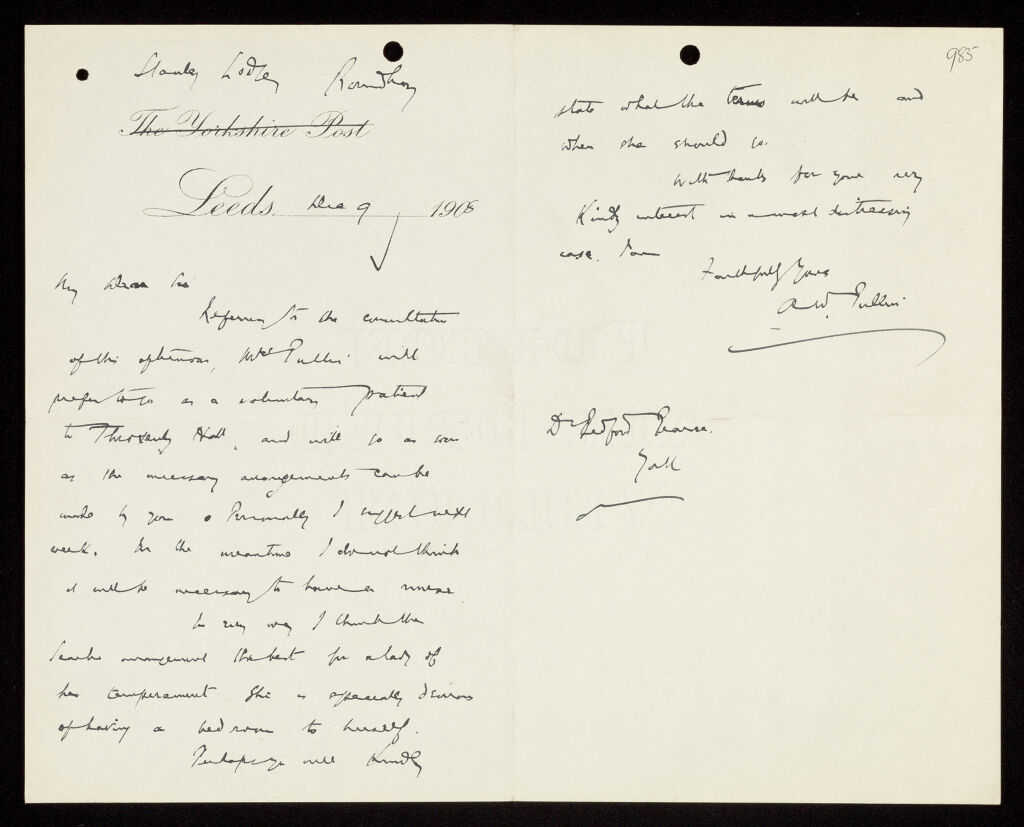 Stanley Lodge Roundhay
The Yorkshire Post
Leeds, Dec 9 1908
My dear Sir
Referring to the consultation
of this afternoon, Mrs Pullin will
prefer to go as a voluntary patient
to Throxenby Hall, and will go as soon
as the necessary arrangements can be
made by you. Personally I suggest next
week. In the meantime I do not think
it will be necessary to have a nurse.
In every way I think the
arrangement the best for a lady of
her temperament. She is especially desirous
of having a bedroom to herself.
Perhaps you will kindly
985
state what the terms will be and
when she should go.
With thanks for your very
kindly interest in a most distressing
case. I am
Faithfully Yours
A W. Pullin.
Dr Bedford Pearce.
York